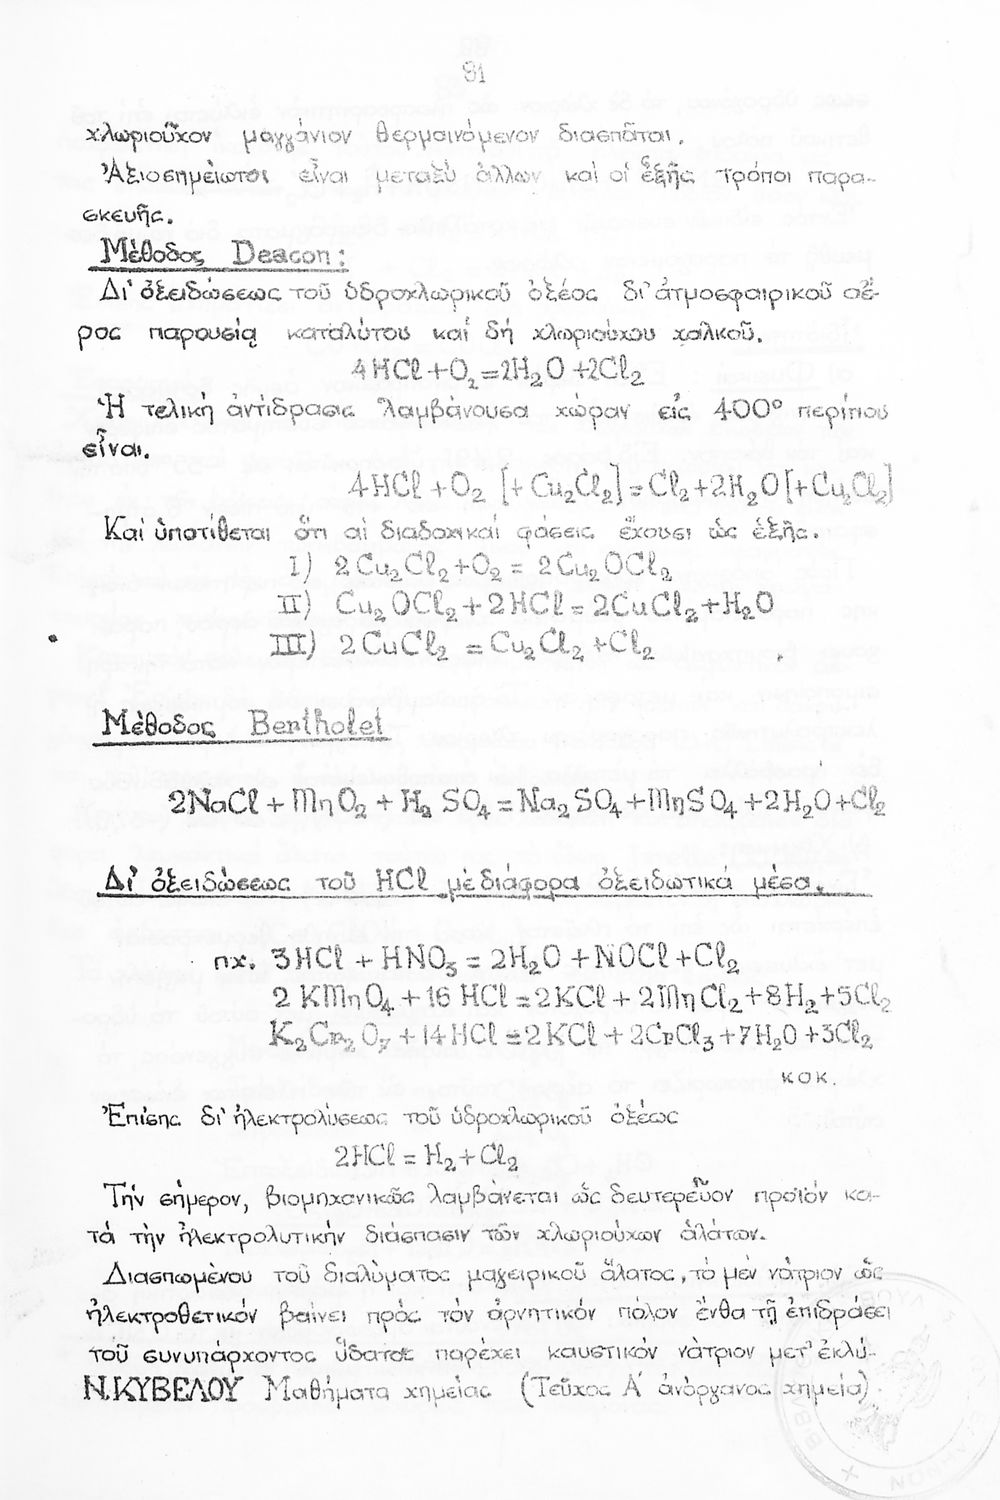 91
χλωριοῦχον μαγγάνιον θερμαινόμενον διασπᾶται.
Ἀξιοσημείωτοι εἶναι μεταξύ ἄλλων καί οἱ ἑξῆς τρόποι παρα-
σκευῆς.
Μέθοδος Deacon:
Δι' ὀξειδώσεως τοῦ ὑδροχλωρικοῦ ὀξέος δι' ἀτμοσφαιρικοῦ ἀέ-
ρος παρουσίᾳ καταλύτου καί δή χλωριούχου χαλκοῦ.
4HCl+O₂=2H₂O+2Cl₂
Ἡ τελική ἀντίδρασις λαμβάνουσα χώραν εἰς 400° περίπου
εἶναι.
4HCl+O₂ [+Cu₂Cl₂]=Cl₂+2H₂O[+Cu₂Cl₂]
Καί ὑποτίθεται ὅτι αἱ διαδοχικαί φάσεις ἔχουσι ὡς ἑξῆς.
I) 2Cu₂Cl₂+O₂ = 2Cu₂OCl₂
II) Cu₂OCl₂+2HCl=2CuCl₂+H₂O
III) 2CuCl₂ = Cu₂Cl₂+Cl₂
Μέθοδος Bertholet
2NaCl+MnO₂+H₂SO₄=Na₂SO₄+MnSO₄+2H₂O+Cl₂
Δι' ὀξειδώσεως τοῦ HCl μέ διάφορα ὀξειδωτικά μέσα.
πχ. 3HCl + HNO₃ = 2H₂O + NOCl + Cl₂
2 KMnO₄ + 16 HCl = 2KCl + 2MnCl₂ + 8H₂ + 5Cl₂
K₂Cr₂O₇ + 14HCl = 2KCl + 2CrCl₃ + 7H₂O + 3Cl₂
κοκ.
Ἐπίσης δι' ἠλεκτρολύσεως τοῦ ὑδροχλωρικοῦ ὀξέως
2HCl = H₂+Cl₂
Τήν σήμερον, βιομηχανικῶς λαμβάνεται ὡς δευτερεῦον προϊόν κα-
τά τήν ἠλεκτρολυτικήν διάσπασιν τῶν χλωριούχων ἁλάτων.
Διασπωμένου τοῦ διαλύματος μαγειρικοῦ ἅλατος, τό μέν νάτριον ὡς
ἠλεκτροθετικόν βαίνει πρός τόν ἀρνητικόν πόλον ἔνθα τῇ ἐπιδράσει
τοῦ συνυπάρχοντος ὕδατος παρέχει καυστικόν νάτριον μετ' ἐκλύ-
Ν.ΚΥΒΕΛΟΥ Μαθήματα χημείας (Τεῦχος Α' ἀνόργανος χημεία).